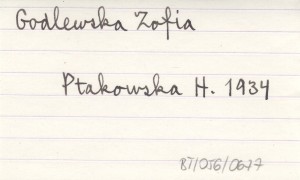 Godlewska Zofia
Ptakowska H. 1934
BT/OJG/0677